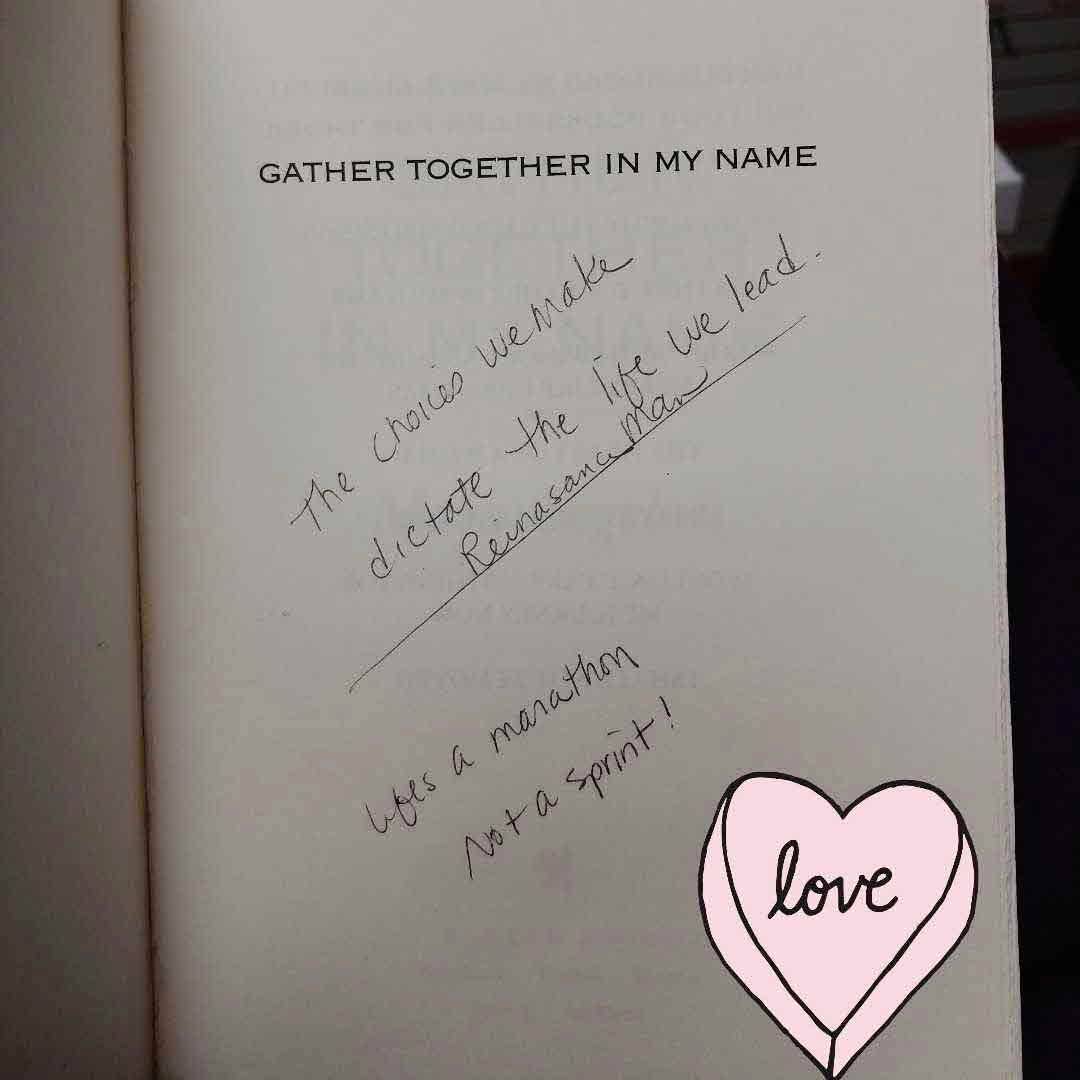 GATHER TOGETHER IN MY NAME
The choices we make
dictate the life we lead.
Reinasance Man
Lifes a marathon
Not a sprint!
love